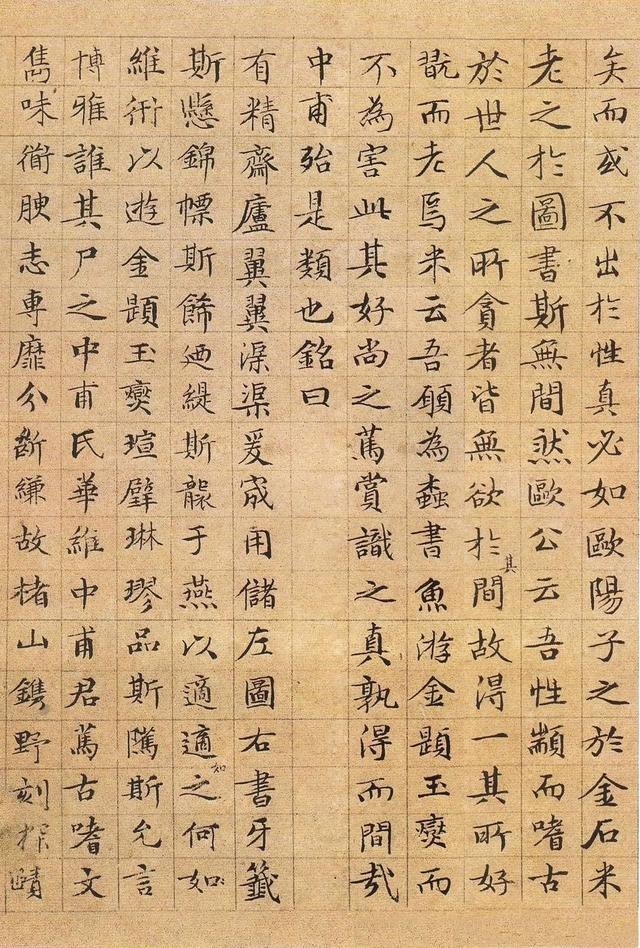 矣而或不出於性真必如歐陽子之於金石米
老之於圖書斯無間然歐公云吾性顓而嗜古
於世人之所貪者皆無欲於其間故得一其所好
翫而老焉米云吾願為蠹書魚游金題玉躞而
不為害此其好尚之篤賞識之真孰得而間哉
中甫殆是類也銘曰
有精齋廬翼翼渠渠爰宬用儲左圖右書牙籤
斯懸錦幖斯飾迺緹斯襲于燕以適適之何如
維衎以遊金題玉躞瑄璧琳璆品斯隲斯允言
博雅誰其尸之中甫氏華維中甫君篤古嗜文
雋味衜腴志專靡分斷縑故楮山鐫野刻探賾